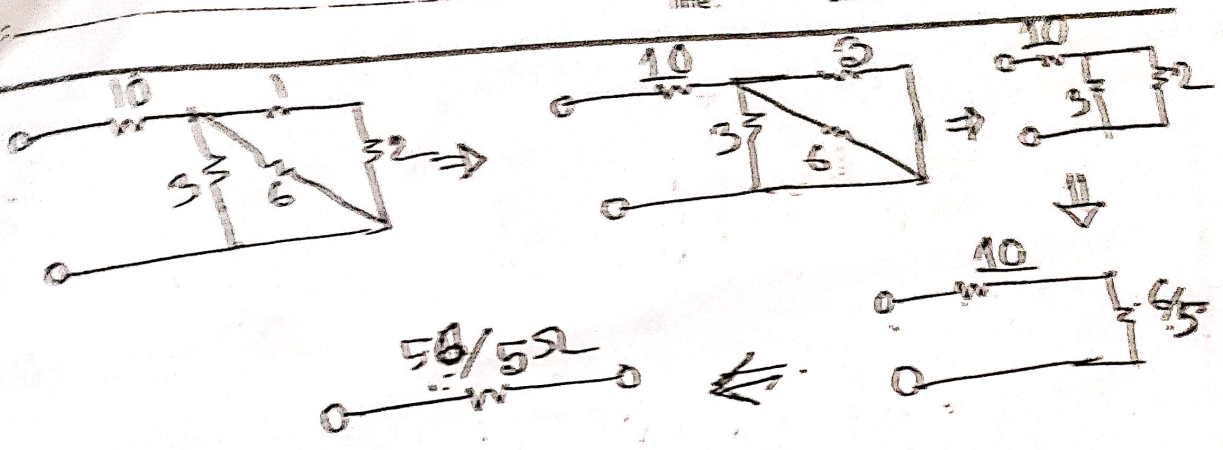 10 1
3 6 2
10 3
3 6
10
3 2
10
6/5
56/5 Ω